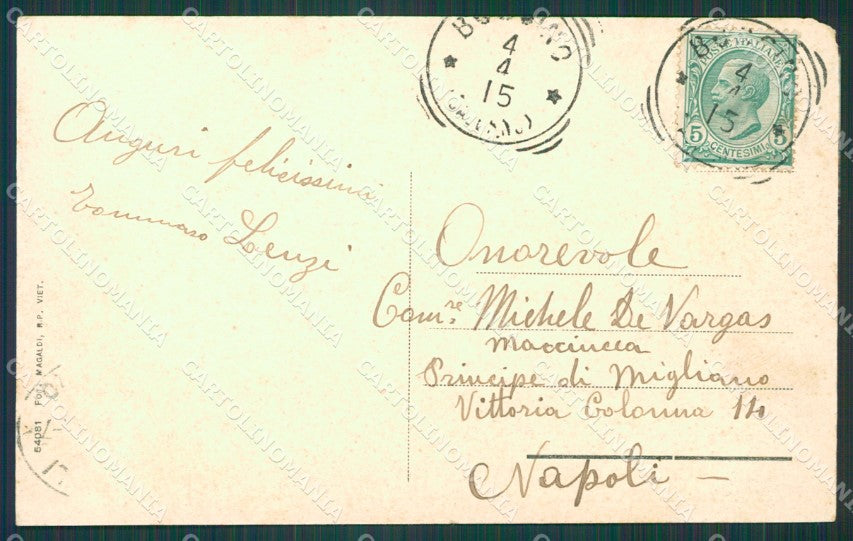 Auguri felicissimi
Tommaso Lenzi
BUCCINO
4
4
15
(SALERNO)
BUCCINO
4
4
15
POSTE ITALIANE
5 5
CENTESIMI
Onorevole
Com.re Michele De Vargas
Macciucca
Principe di Migliano
Vittoria Colonna 14
Napoli -
54081 Fot. MAGALDI, R.P. VIET.
CARTOLINOMANIA